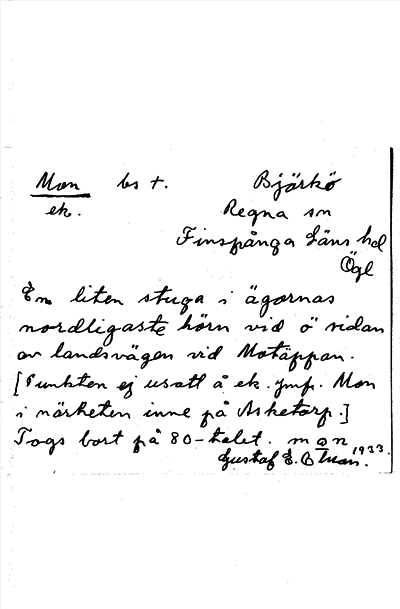 Mon bs t. Björkö
ek. Regna sn
Finspånga läns hd
Ögl
En liten stuga i ägornas
nordligaste hörn vid ö sidan
av landsvägen vid Motäppan.
[Punkten ej utsatt å ek. jmf. Mon
i närheten inne på Asketorp.]
Togs bort på 80-talet. mon
Gustaf E. 1933.